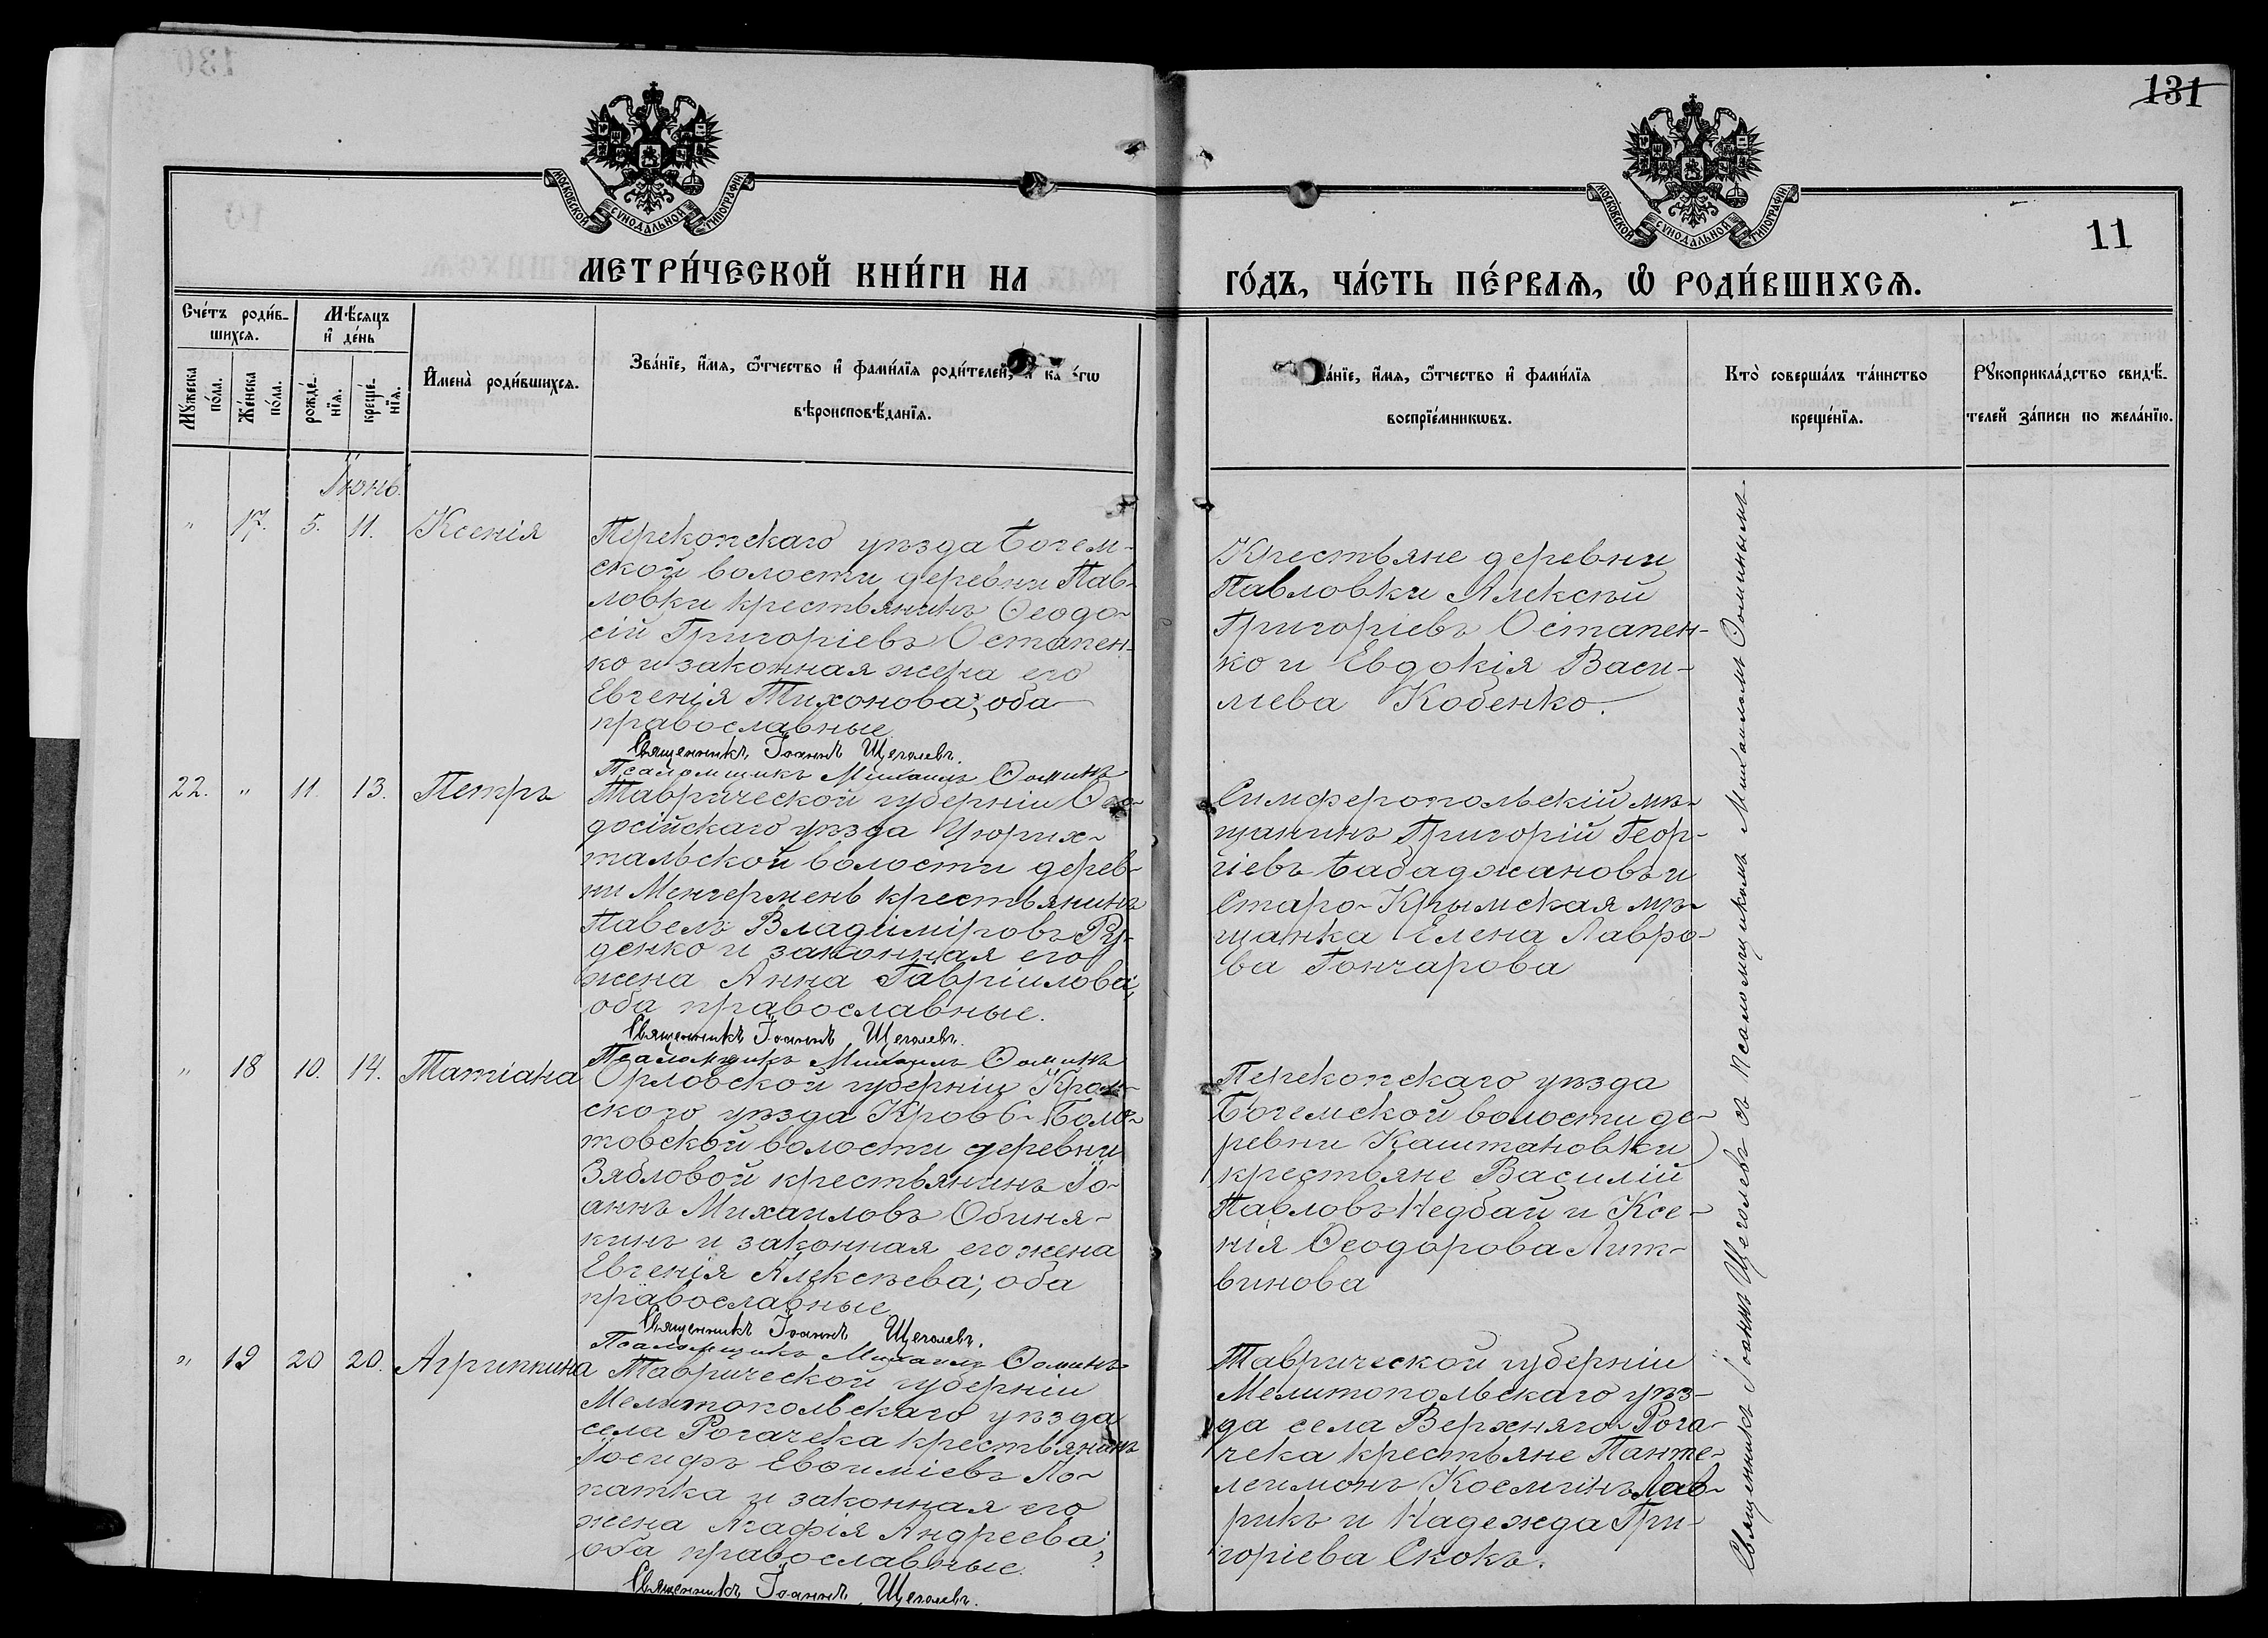 131
11
МОСКОВСКОЙ СѴНОДАЛЬНОЙ ТИПОГРАФІИ
МОСКОВСКОЙ СѴНОДАЛЬНОЙ ТИПОГРАФІИ
МЕТРИ́ЧЕСКОЙ КНИ́ГИ НА
ГО́ДЪ, ЧА́СТЬ ПЕ́РВАѦ, Ѡ҆ РОДИ́ВШИХСѦ.
Сче́тъ роди́в-
шихсѧ.
Мѣ́сѧцъ
и҆ де́нь
Мꙋ́жеска
по́ла.
Же́нска
по́ла.
рожде́-
нїѧ.
креще́-
нїѧ.
И҆мена̀ роди́вшихсѧ.
Зва́нїе, и҆́мѧ, ѻ҆́тчество и҆ фами́лїѧ роди́телей,
вѣроисповѣ́данїѧ.
и҆́мѧ, ѻ҆́тчество и҆ фами́лїѧ
воспрїе́мникѡвъ.
Кто̀ соверша́лъ та́инство
креще́нїѧ.
Рꙋкоприкла́дство свидѣ́-
телей за́писи по жела́нїю.
Іюнь.
" 17. 5. 11. Ксенія
Перекопскаго уѣзда Богем-
ской волости деревни Пав-
ловки крестьянинъ Ѳеодо-
сій Григоріевъ Остапен-
ко и законная жена его
Евгенія Тихонова; оба
православные
Священникъ Іоаннъ Щеголевъ.
Псаломщикъ Михаилъ Ѳоминъ
Крестьяне деревни
Павловки Алексѣй
Григоріевъ Остапен-
ко и Евдокія Васи-
лiева Кобенко.
22. " 11. 13. Петръ
Таврической губерніи Ѳео-
досійскаго уѣзда Цюрих-
тальской волости дерев-
ни Менгермень крестьянинъ
Павелъ Владиміровъ Ру-
денко и законная его
жена Анна Гавріилова;
оба православные.
Священникъ Іоаннъ Щеголевъ.
Псаломщикъ Михаилъ Ѳоминъ
Симферопольскій мѣ-
щанинъ Григорій Геор-
гіевъ Бабаджановъ и
Старо-Крымская мѣ-
щанка Елена Лавро-
ва Гончарова
" 18 10. 14. Татіана
Орловской губерніи Кром-
ского уѣзда Кров Боло-
товской волости деревни
Зябловой крестьянинъ Іо-
аннъ Михаиловъ Обиня-
кинъ и законная его жена
Евгенія Алексѣева; оба
православные
Священникъ Іоаннъ Щеголевъ.
Псаломщикъ Михаилъ Ѳоминъ
Перекопскаго уѣзда
Богемской волости де-
ревни Каштановки
крестьяне Василій
Павловъ Недбай и Ксе-
нія Ѳеодорова Лит-
винова
" 19 20 20. Агриппина
Таврической губерніи
Мелитопольскаго уѣзда
села Рогачека крестьянинъ
Іосифъ Евѳиміевъ Ло-
патка и законная его
жена Агафія Андреева;
оба православные.
Священникъ Іоаннъ Щеголевъ.
Таврической губерніи
Мелитопольскаго уѣз-
да села Верхняго Рога-
чека крестьяне Панте-
леимонъ Космiнъ Лав-
рикъ и Надежда Гри-
горіева Скокъ.
Священникъ Іоаннъ Щеголевъ съ псаломщикомъ Михаиломъ Ѳоминымъ.